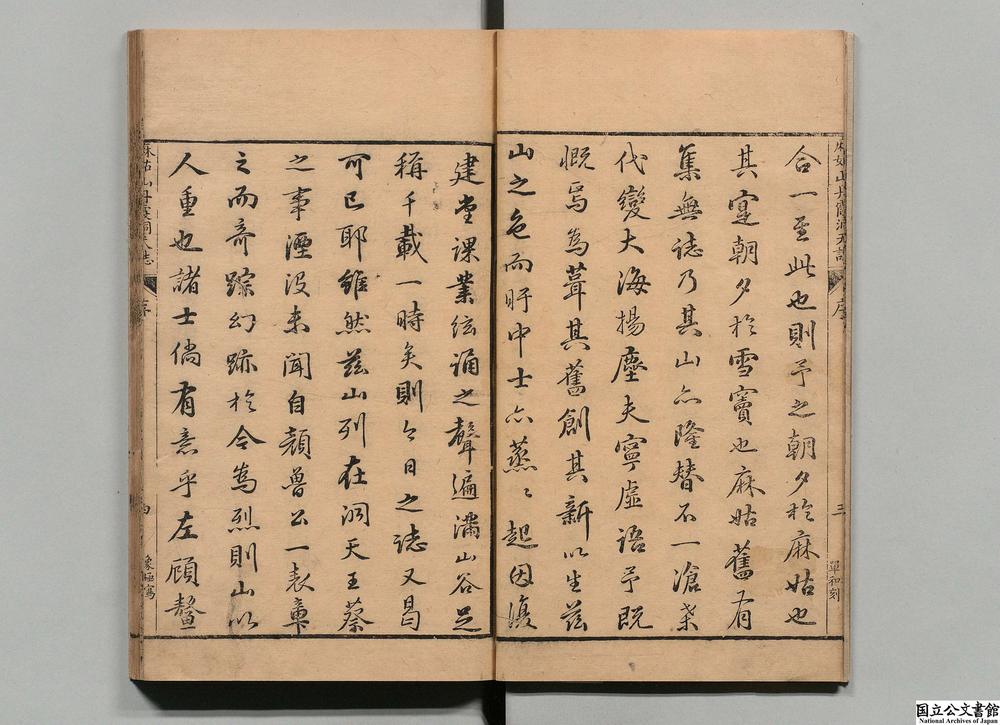 麻姑山丹霞洞天誌
序
三
單和刻
合一至此也則予之朝夕於麻姑也
其寔朝夕於雪竇也麻姑舊有
集無誌乃其山亦隆替不一滄桑
代變大海揚塵夫寧虛語予既
慨焉為葺其舊創其新以生茲
山之色而盱中士亦蒸〻起因復
建堂課業絃誦之聲遍滿山谷足
稱千載一時矣則今日之誌又曷
可已耶雖然茲山列在洞天王蔡
之事湮沒未聞自顏魯公一表章
之而奇蹤幻跡於今為烈則山以
人重也諸士倘有意乎左顧鼇
麻姑山丹霞洞天誌
序
四
國立公文書館
National Archives of Japan